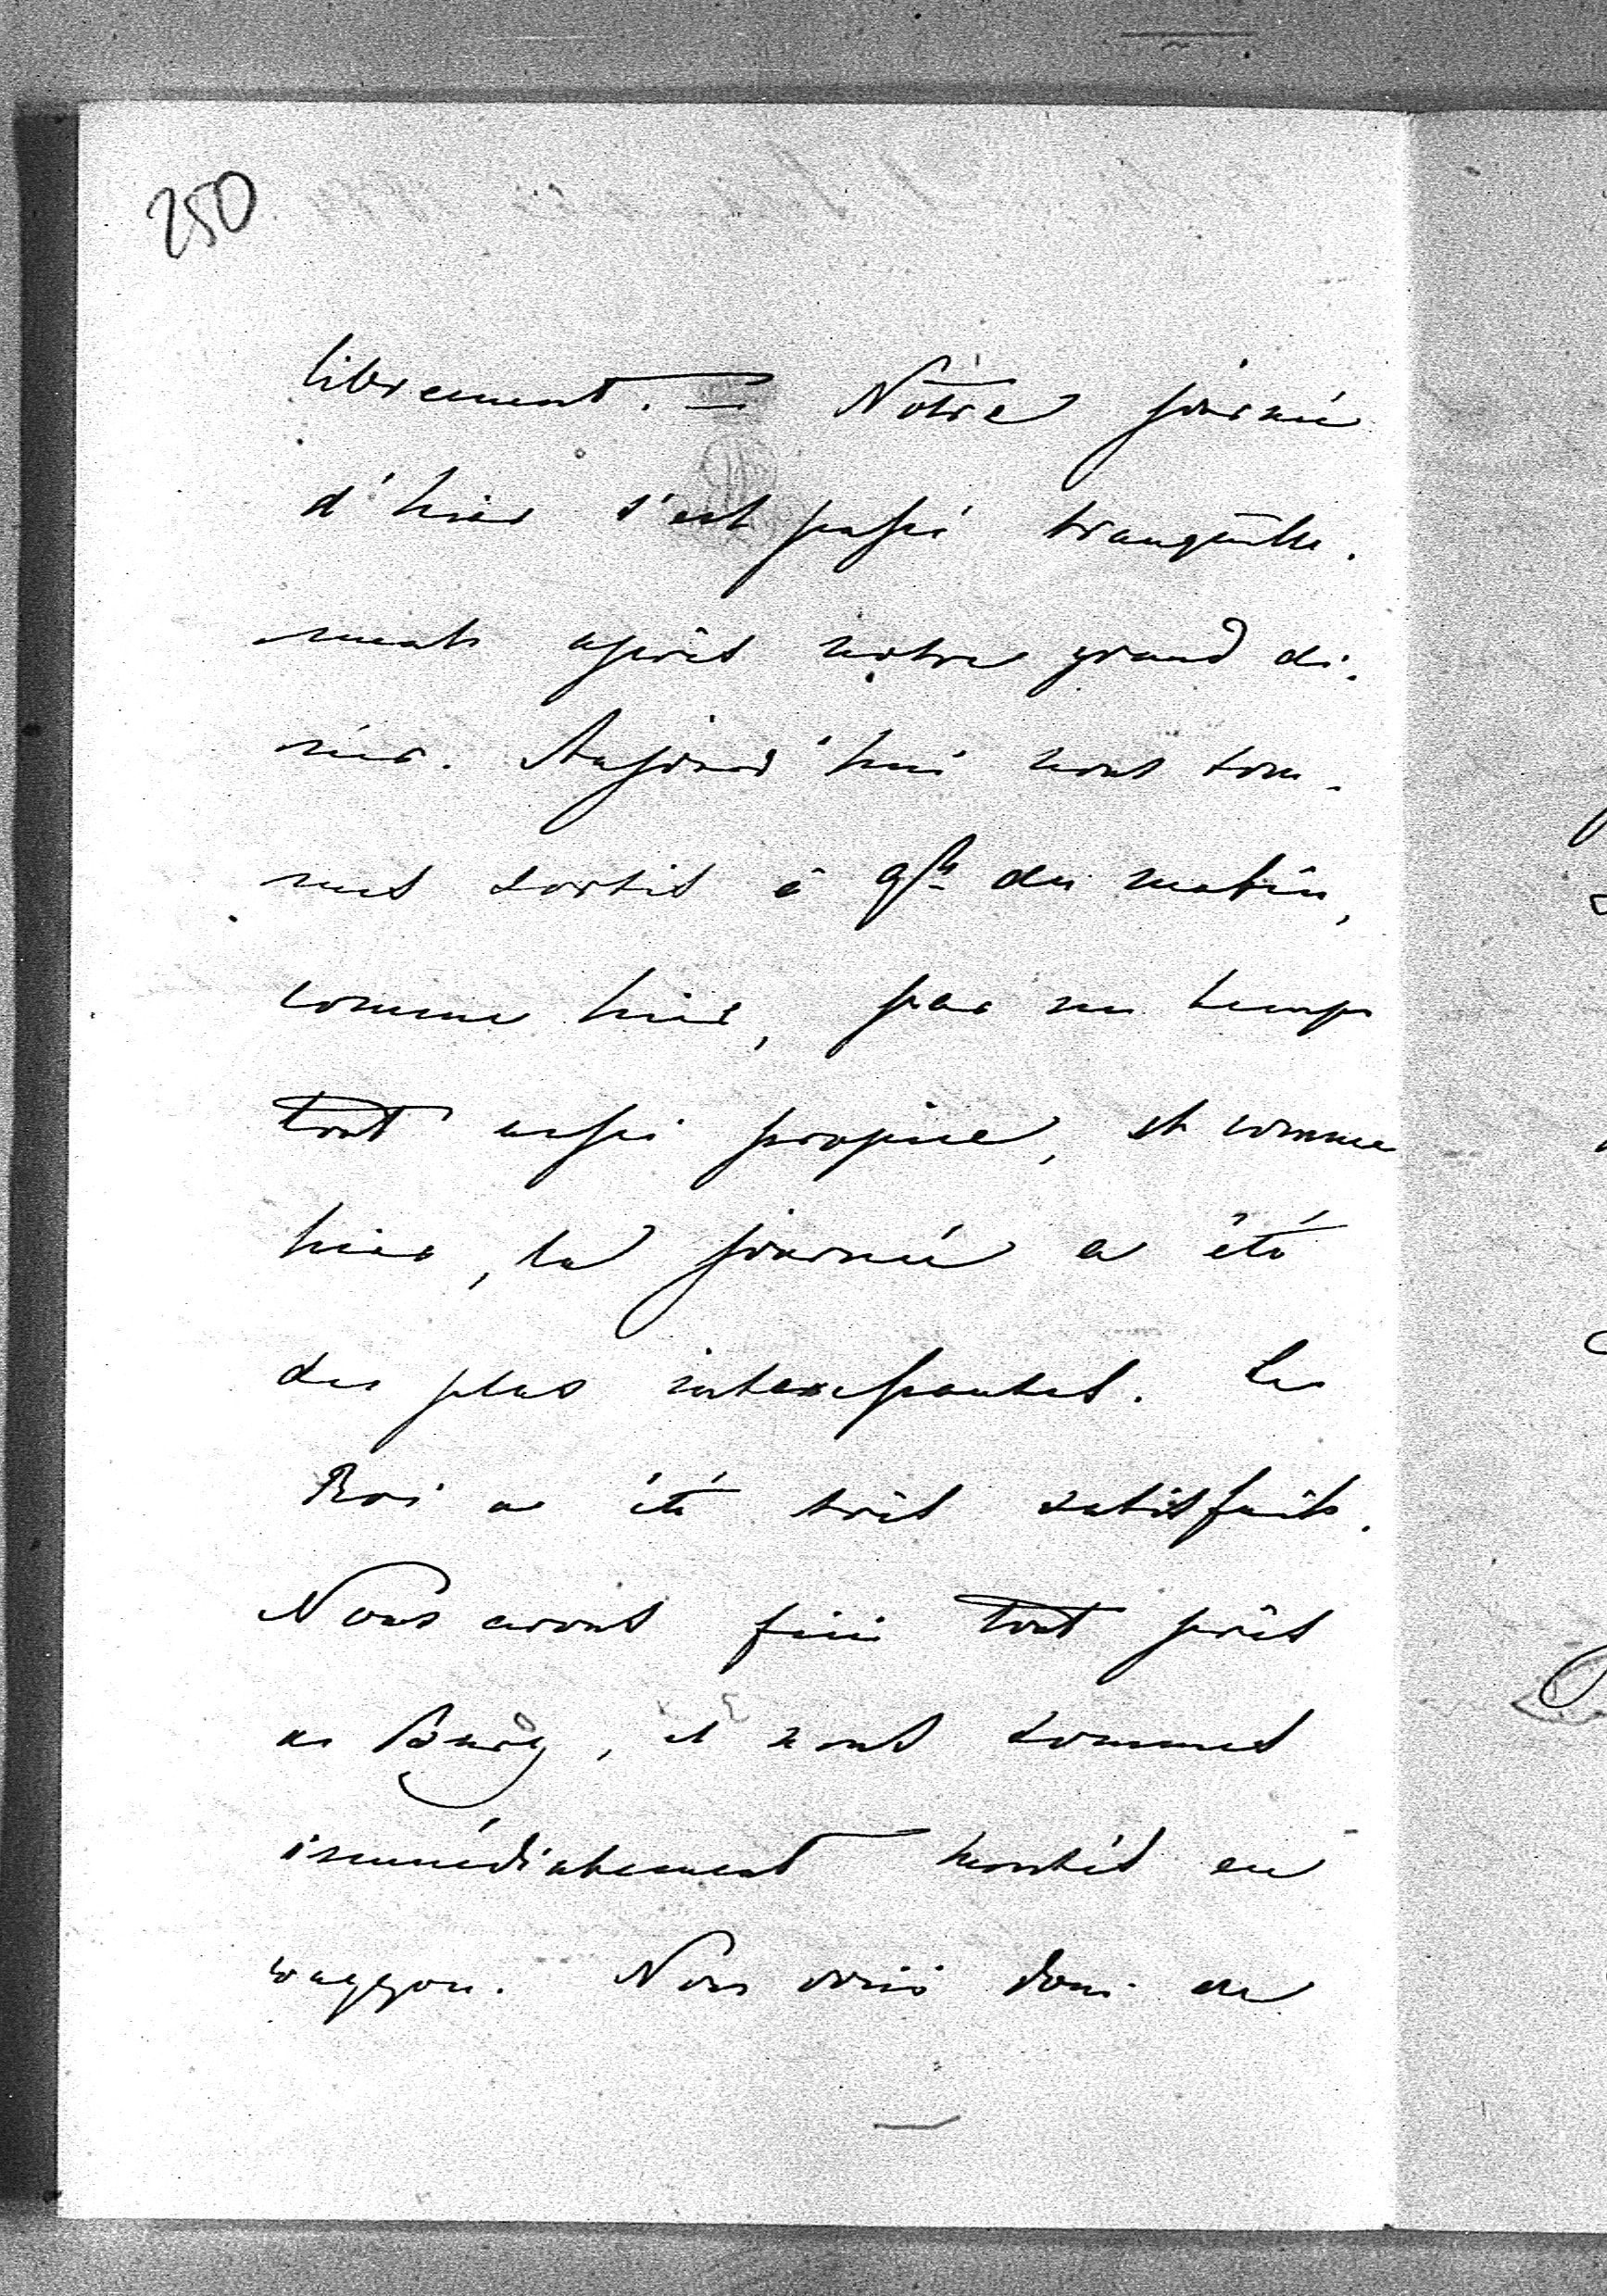 250
librement. — Nôtre journée
d'hier s'est passé tranquille-
ment après notre grand di-
ner. Aujourd'hui nous som-
mes sortis à 9h du matin,
comme hier, par un temps
tout aussi propice, et comme
hier, la journée a été
des plus interessantes. Le
Roi a été très satisfait.
Nous avons fini tout près
de Burg, et nous sommes
immédiatement montés en
waggon. Nous voici donc de